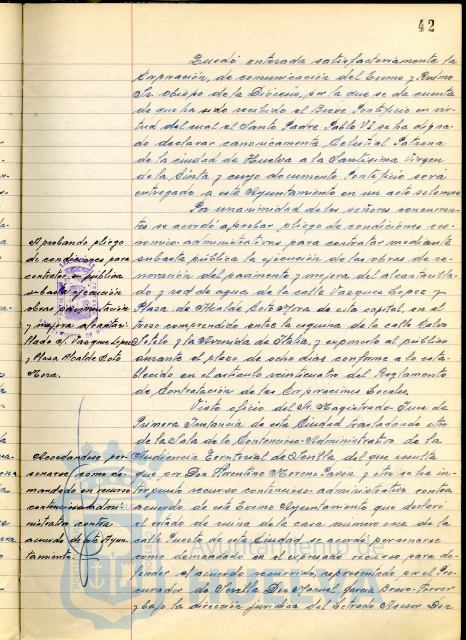 42
Quedó enterada satisfactoriamente la
Corporación, de comunicación del Excmo y Rvdmo
Sr. Obispo de la Diócesis, por la que se da cuenta
de que ha sido recibido el Breve Pontificio en vir-
tud del cual el Santo Padre Pablo VI se ha digna-
do declarar canonicamente Celestial Patrona
de la ciudad de Huelva a la Santísima Virgen
de la Cinta y cuyo documento Pontificio será
entregado a este Ayuntamiento en un acto solemne
Por unanimidad de los señores concurren-
tes se acordó aprobar pliego de condiciones eco-
nomico-administrativas para contratar mediante
subasta pública la ejecución de las obras de re-
novación del pavimento y mejora del alcantarilla-
do y red de agua de la calle Vazquez Lopez y
Plaza de Alcalde Coto Mora de esta capital, en el
trozo comprendido entre la esquina de la calle Calvo
Sotelo y la Avenida de Italia, y exponerlo al público
durante el plazo de ocho dias conforme a lo esta-
blecido en el artículo veinticuatro del Reglamento
de Contratación de las Corporaciones Locales.
Visto oficio del Sr. Magistrado-Juez de
Primera Instancia de esta Ciudad trasladando otro
de la Sala de lo Contencioso-Administrativo de la
Audiencia Territorial de Sevilla del que resulta
que por Don Florentino Moreno y otro se ha in-
terpuesto recurso contencioso-administrativo contra
acuerdo de este Excmo Ayuntamiento que declaró
el estado de ruina de la casa numero once de la
calle Puerto de esta Ciudad se acordó personarse
como demandado en el expresado recurso para de-
fender el acuerdo recurrido, representado por el Pro-
curador de Sevilla Don Manuel Garcia Bravo-Ferrer
y bajo la dirección jurídica del Letrado Asesor Don
Aprobando pliego
de condiciones, para
contratar en pública
subasta ejecución
obras pavimentación
y mejora alcantari-
llado c/. Vazquez Lopez
y Plaza Alcalde Coto
Mora.
Acordandose per-
sonarse como de-
mandado en recurso
contencioso admi-
nistrativo contra
acuerdo de este Ayun-
tamiento.